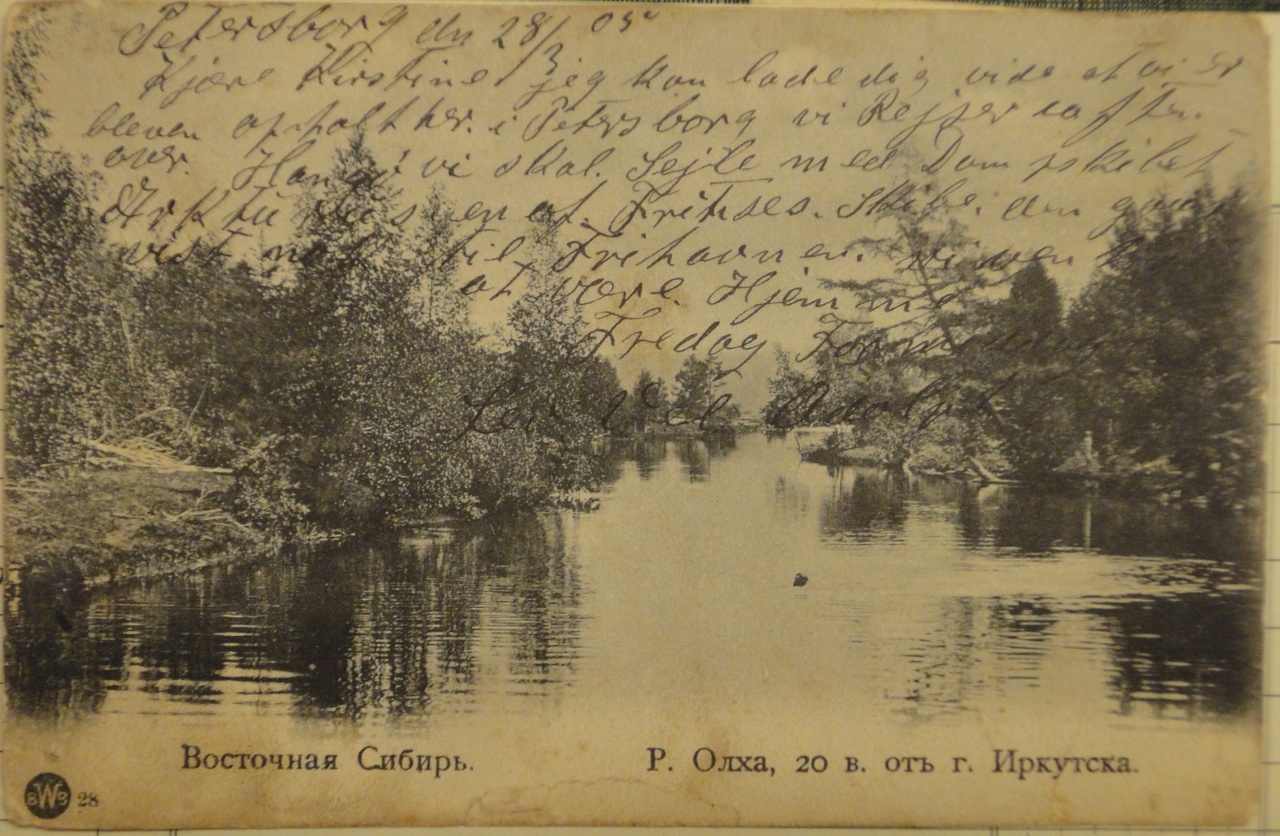 Petersborg den 28/3 05
Kjære Kirstine jeg kan lade dig vide at vi er
bleven opholt her. i Petersborg vi Rejser iaften
over. Hangø vi skal. Sejle med Dampskibet
Arkturus en af. Fritses. Skibe. den gaar
vist nok til Frihavnen. vi
at være. Hjemme
Fredag Formiddag
Lev Vel Adolph
Восточная Сибирь.
Р. Олха, 20 в. отъ г. Иркутска.
28